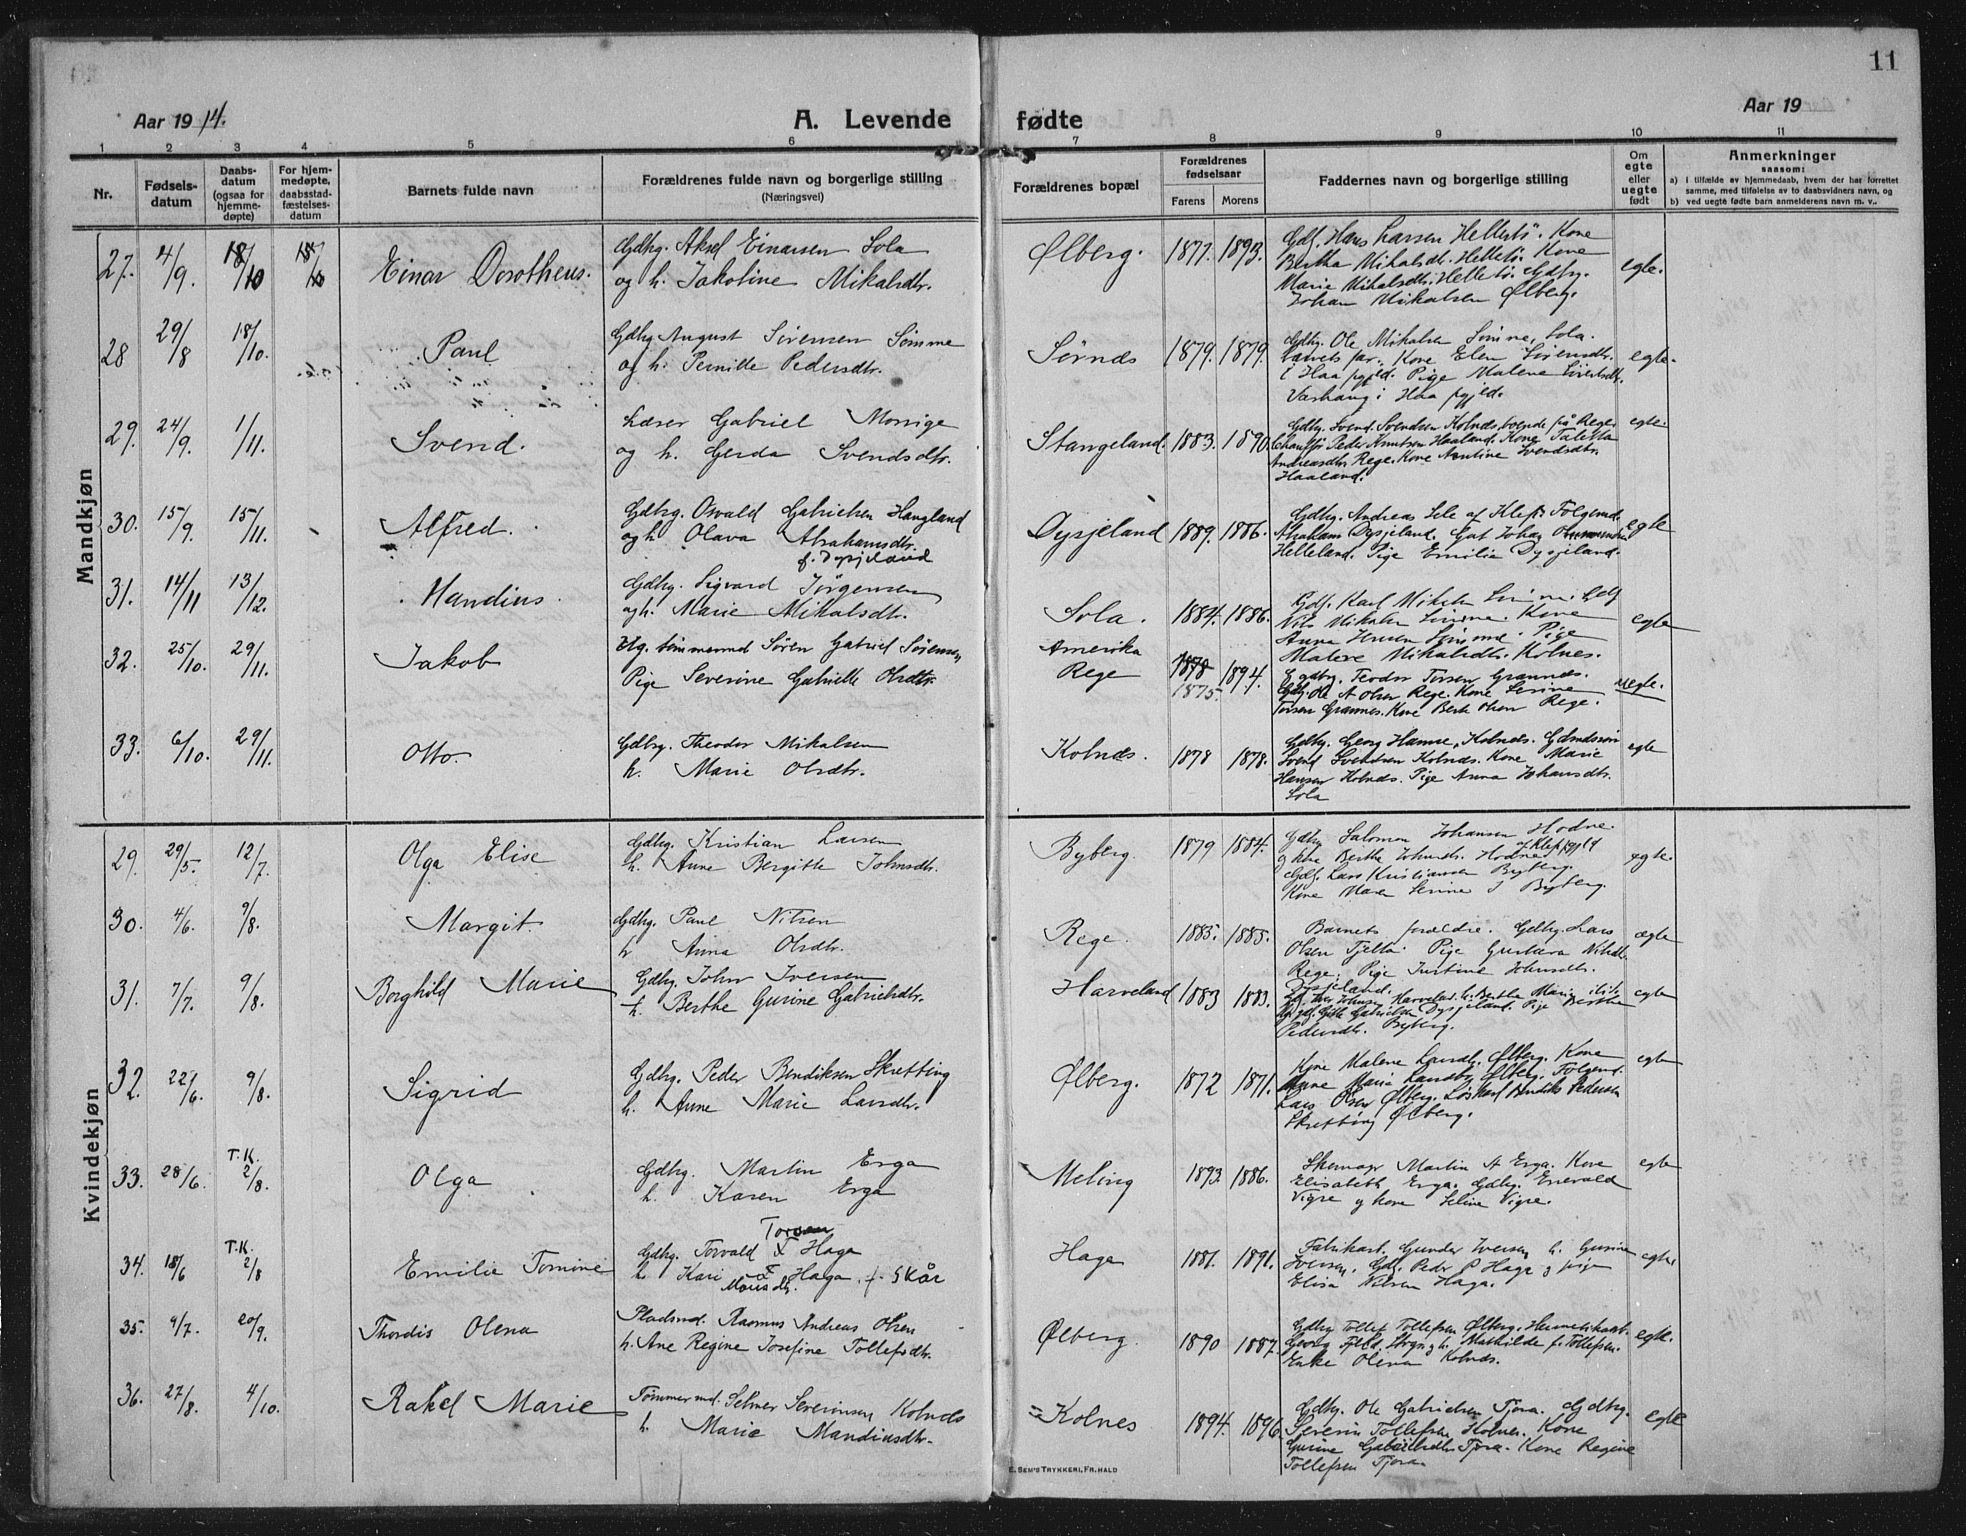 11
Aar 1914.
A. Levende fødte
Aar 19
1 2 3 4 5 6 7 8 9 10 11
Nr.
Fødsels-
datum
Daabs-
datum
(ogsaa for
hjemme-
døpte)
For hjem-
medøpte,
daabsstad-
fæstelses-
datum
Barnets fulde navn
Forældrenes fulde navn og borgerlige stilling
(Næringsvei)
Forældrenes bopæl
Forældrenes
fødselsaar
Farens Morens
Faddernes navn og borgerlige stilling
Om
egte
eller
uegte
født
Anmerkninger
saasom:
a) i tilfælde av hjemmedaab, hvem der har forrettet
samme, med tilføielse av to daabsvidners navn, og
b) ved uegte fødte barn anmelderens navn m. v..
Mandkjøn
27. 4/9. 18/10 Einar Dorotheus.
Gdbg. Aksel Einarsen Sola
og h. Jakobine Mikalsdtr.
Ølberg. 1877. 1893.
Gdf. Hans Larsen Helleстø. Kone
Bertha Mikalsdtr. Hellestø. Kone
Marie Mikalsdtr. Hellestø. Gdbg.
Johan Mikalsen Ølberg.
egte.
28 29/8 18/10. Paul
Gdbg August Sørensen Sømme
og h. Pernille Pedersdtr.
Sørnes 1879. 1879.
Gdbg. Ole Mikalsen Sømme, Sola.
Barnets far. Kone Elen Sørensdtr.
i Haa pgjeld. Pige Malene Sivertsdtr.
Varhaug i Haa pgjeld.
egte.
29. 24/9. 1/11. Svend.
Lærer Gabriel Monige
og h. Gerda Svendsdtr.
Stangeland. 1883. 1890.
Gdbg. Svend Svendsen Kolnes, boende på Rege.
Chauffør Peder Knutsen Haaland. Kone Taletta
Andreasdtr. Rege. Kone Svendsdtr.
Haaland.
egte.
30. 15/9. 15/11. Alfred.
Gdbrg. Osvald Gabrielsen Haugland
og h Olava Abrahamsdtr.
f. Dysjeland
Dysjeland 1889. 1886.
Gdbg. Andreas Lele af Klep. Følgemd.
Abraham Dysjeland. Gut Johan
Helleland. Pige Emilie Dysjeland.
egte
31. 14/11 13/12. Mandius.
Gdbg. Sigvard Jørgensen
og h. Marie Mikalsdtr.
Sola. 1884. 1886.
Gdf. Karl Mikalsen Sømme. Gdf
Nils Mikalsen Sømme. Kone
Anna Hansen Sømme. Pige
Malene Mikalsdtr. Kolnes.
egte
32. 25/10. 29/11. Jakob
Ug. tømmermd Søren Gabriel Sørensen
Pige Severine Gabrielle Olsdtr.
Amerika
Rege
1878
1875. 1894.
Gdbg. Teodor Torsen Grannes.
Gdbg. Ole A Olsen Rege. Kone Serine
Torsen Grannes. Kone Berte Olsen Rege.
uegte.
33. 6/10. 29/11. Otto.
Gdbrg. Theodor Mikalsen
h. Marie Olsdtr.
Kolnes. 1878 1878.
Gdbg. Georg Hanse, Kolnes. Gdmdssøn
Svend Svendsen Kolnes. Kone Marie
Hansen Kolnes. Pige Anna Johansdtr.
Sola
egte
Kvindekjøn
29. 29/5. 12/7. Olga Elise
Gdbg. Kristian Larsen
h. Anne Bergitte Johnsdtr.
Byberg. 1879 1884.
Gdbg Salomon Johansen Hodne.
af Klep pgjld
og kone Berthe Johnsdtr. Hodne
Gdf. Lars Kristiansen Byberg.
Kone Maren Serine J Byberg.
egte.
30. 4/6. 9/8. Margit.
Gdbg. Paul Nilsen
h Anna Olsdtr.
Rege. 1885. 1885.
Barnets forældre. Gdbg. Lars
Olsen Tjelta. Pige Gustava Nilsdtr.
Rege. Pige Justine Johnsdtr.
Dysjeland.
ægte
31. 7/7. 9/8. Borghild Marie
Gdbg. John Iversen
h. Berthe Gurine Gabrielsdtr.
Harveland 1883 1883.
Gdf. Iver Johnsen Harveland. h. Berthe Marie
Gabrielsen Dysjeland. Pige Berthe
Pedersdtr. Byberg.
egte
32. 22/6. 9/8. Sigrid
Gdbg. Peder Bendiksen Skretting
h. Anne Marie Larsdtr.
Ølberg. 1872 1871.
Kone Malene Larsdtr. Ølberg. Kone
Anne Marie Larsdtr Ølberg. Følgemd.
Lars Olsen Ølberg. Løskarl Bendiks Pedersen
Skretting Ølberg.
egte
33. 28/6. T.K. 2/8. Olga
Gdbg. Martin Erga
h. Karen Erga
Meling 1893. 1886.
Skomagr Martin A Erga. Kone
Elisabeth Erga. Gdbg. Enevald
Vigre og kone Seline Vigre.
egte
34. 18/6 T.K. 2/8 Emilie Tomine
Torsen
Gdbg. Torvald T Haga
h Kari T Haga f. Skår
Monsdtr.
Haga 1881. 1891.
Fabrikarb. Gunder Iversen h. Gurine
Iversen. Gdbg. Peder P Haga og pige
Elisa Nilsen Haga.
egte
35. 9/7. 20/9. Thordis Olena
Pladsmd. Rasmus Andreas Olsen
h. Ane Regine Josefine Tollefsdtr.
Ølberg. 1890 1887.
Gdbg Tollef Tollefsen Ølberg. Hermetikarb.
Georg Fjeld, Stvgr. og h. Mathilde f. Tollefsen.
Enke Olena Kolnes.
egte.
36. 27/8. 4/10. Rakel Marie
Tømmermd. Selmer Severinsen Kolnes
h. Marie Mandiusdtr.
Kolnes 1894. 1896.
Gdbg. Ole Gabrielsen Tjora. Gdbg.
Severin Tollefsen Kolnes. Kone
Gurine Gabrielsdtr Tjora. Kone Regine
Tollefsen Tjora.
egte
E. SEM'S TRYKKERI, FR.HALD